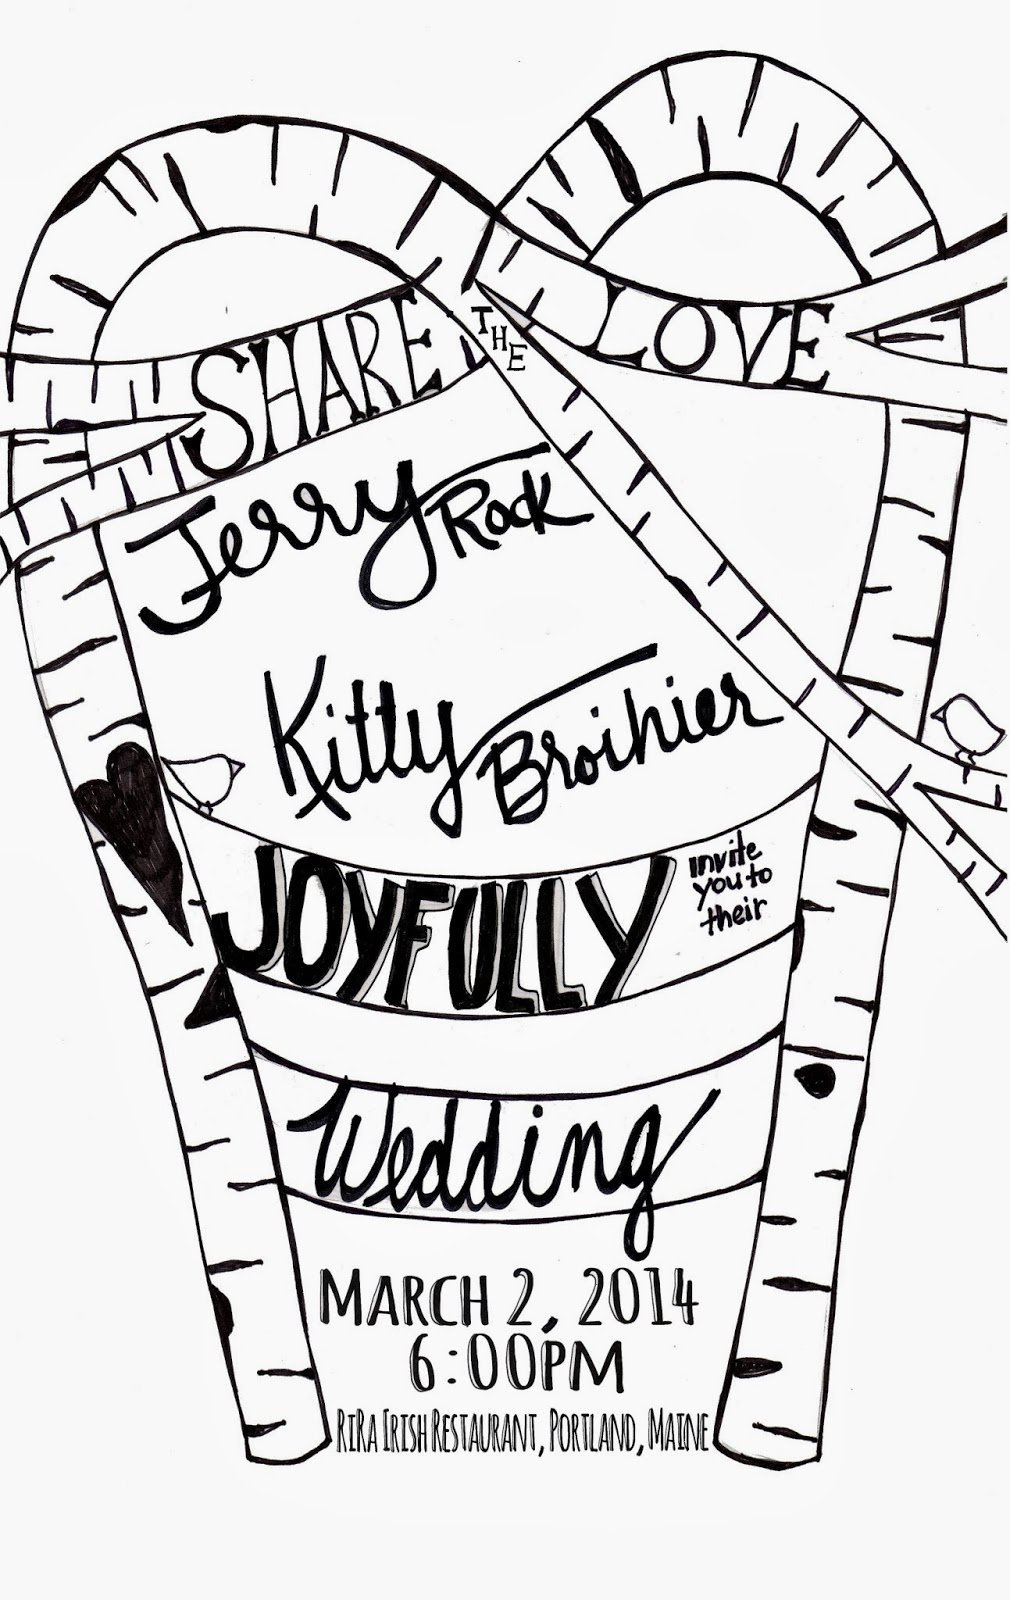 SHARE THE LOVE
Jerry Rock
Kitty Broihier
JOYFULLY invite you to their
Wedding
MARCH 2, 2014
6:00PM
RIRA IRISH RESTAURANT, PORTLAND, MAINE